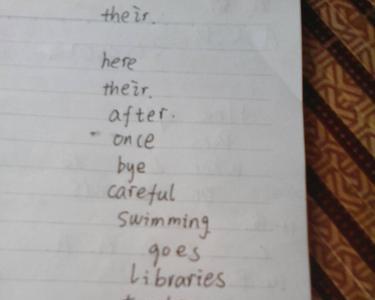 their.
here
their.
after.
once
bye
careful
swimming
goes
libraries